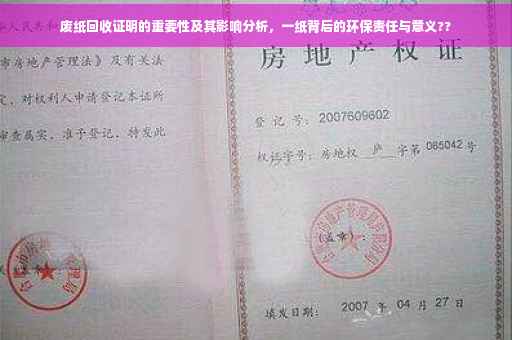 废纸回收证明的重要性及其影响分析，一纸背后的环保责任与意义??
华人民共和
市房地产管理法》及有关法
定，对权利人申请登记本证所
审查属实，准予登记，特发此
房地产权证
登记号：2007609602
权证字号：房地权 庐 字第 085042 号
(盖章)：
填发日期：2007 年 04 月 27 日